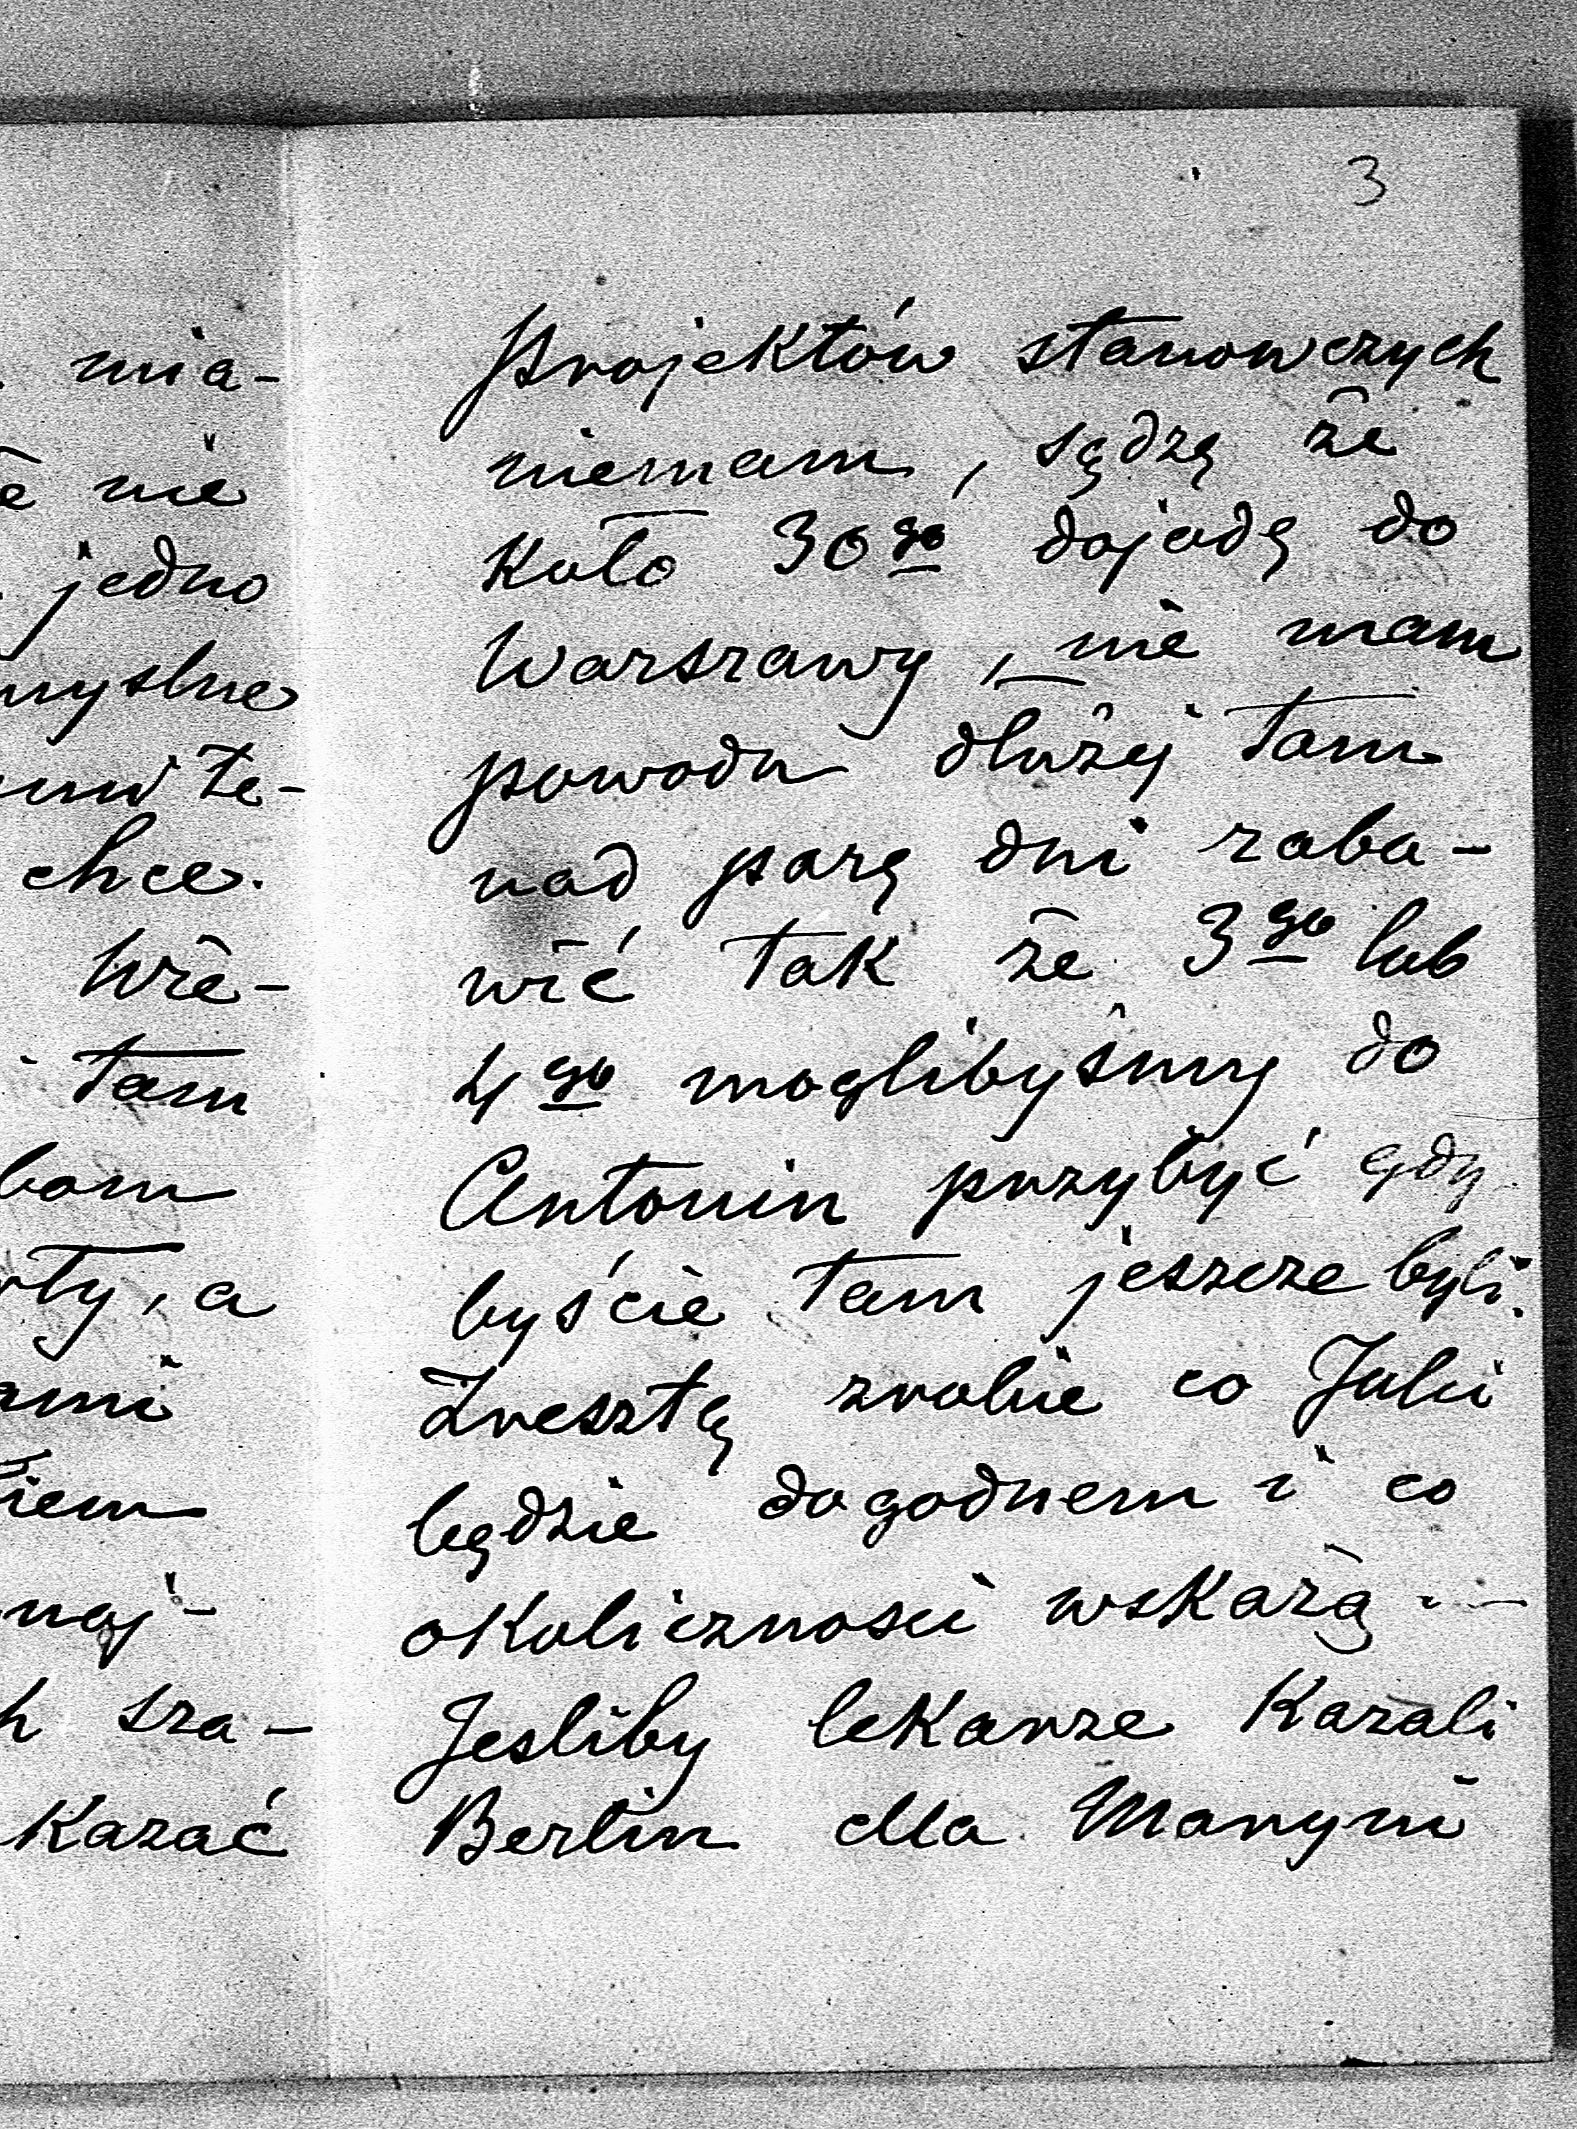 3
mia-
nie
jedno
chce.
tam
a
sza-
kazać
projektów stanowczych
niemam, sądzę że
koło 30go dojadę do
Warszawy, nie mam
powodu dłużej tam
nad parę dni zaba-
wić tak że 3go lub
4go moglibyśmy do
Antonin przybyć gdy
byście tam jeszcze byli.
Zresztą zrobie co Julii
będzie dogodnem i co
okoliczności wskażą –
Jesliby lekarze kazali
Berlin dla Maryni